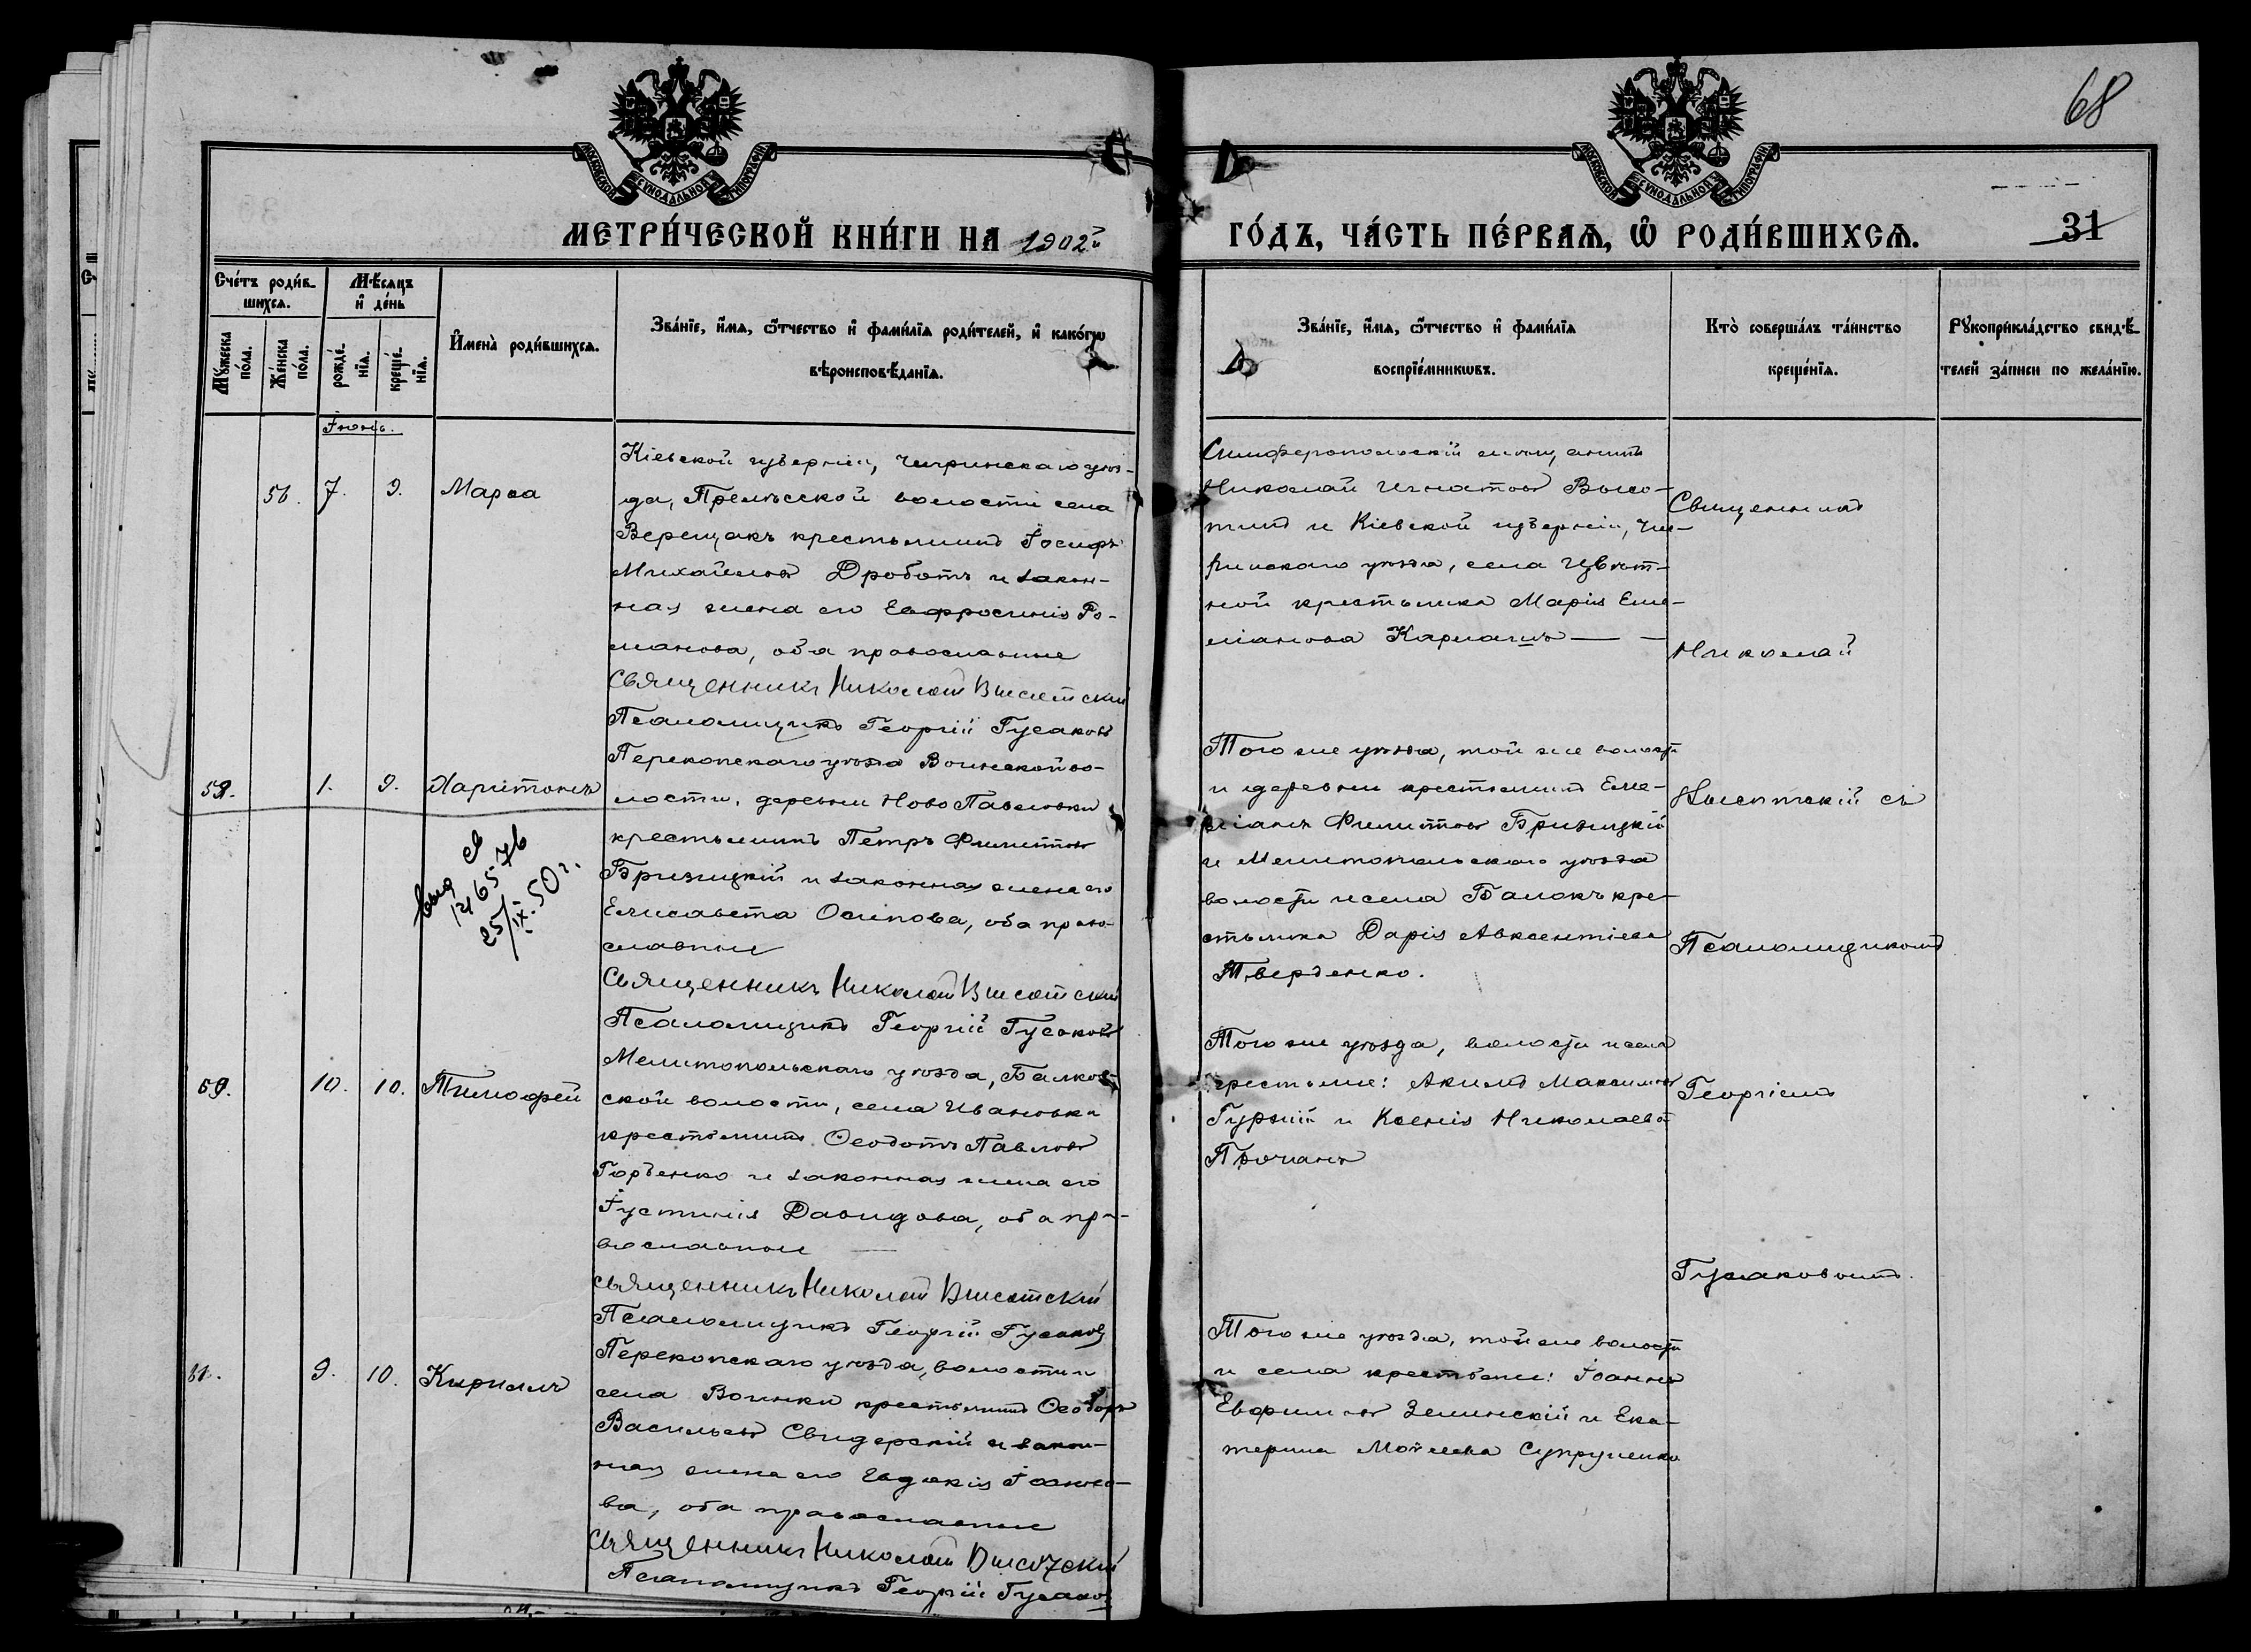 68
МОСКОВСКОЙ СѴНОДАЛЬНОЙ ТИПОГРАФІИ
МОСКОВСКОЙ СѴНОДАЛЬНОЙ ТИПОГРАФІИ
МЕТРИ́ЧЕСКОЙ КНИ́ГИ НА 1902й
ГО́ДЪ, ЧА́СТЬ ПЕ́РВАѦ, Ѡ РОДИ́ВШИХСѦ.
31
Сче́тъ роди́в-
шихсѧ.
Мꙋ́жеска по́ла.
Же́нска по́ла.
Мѣ́сѧцъ
и҆ де́нь
рожде́-
нїѧ.
креще́-
нїѧ.
И҆мена̀ роди́вшихсѧ.
Зва́нїе, и҆́мѧ, ѻ҆́тчество и҆ фами́лїѧ роди́телей, и҆ како́гѡ
вѣроисповѣ́данїѧ.
Зва́нїе, и҆́мѧ, ѻ҆́тчество и҆ фами́лїѧ
воспрїе́мникѡвъ.
Кто̀ соверша́лъ та́инство
креще́нїѧ.
Рꙋкоприкла́дство свидѣ́-
телей за́писи по жела́нїю.
Іюнь.
56. 7. 9. Марѳа
Кіевской губерніи, Чигринскаго уѣз-
да, Прелѣсской волости села
Верещакъ крестьянинъ Іосифъ
Михайловъ Дроботъ и закон-
ная жена его Евфросинія Ро-
манова, оба православные
Священникъ Николай Высотскій
Псаломщикъ Георгій Гусаковъ
Симферопольскій мѣщанинъ
Николай Игнатовъ Высо-
тинъ и Кіевской губерніи, Чи-
гринскаго уѣзда, села Цвѣт-
ной крестьянка Марія Еме-
ліанова Кармачъ
Священникъ
Николай
59. 1. 9. Харитонъ
Перекопскаго уѣзда Воинской во-
лости, деревни Ново Павловки
крестьянинъ Петръ Филиповъ
Бризицкій и законная жена его
Елисавета Осипова, оба право-
славные
Священникъ Николай Высотскій
Псаломщикъ Георгій Гусаковъ
св
25/IX. 50 г.
Того же уѣзда, той же волости
и деревни крестьянинъ Еме-
ліанъ Филиповъ Бризицкій
и Мелитопольскаго уѣзда
волости и села Балокъ кре-
стьянка Дарія Авксентіева
Тверденко.
Высотскій съ
Псаломщикомъ
10. 10. Тимофей
Мелитопольскаго уѣзда, Балков-
ской волости, села Ивановки
крестьянинъ Ѳеодотъ Павловъ
Горбенко и законная жена его
Іустинія Давидова, оба пра-
вославные
Священникъ Николай Высотскій
Псаломщикъ Георгій Гусаковъ
Того же уѣзда, волости и села
крестьяне: Акимъ Максимовъ
и Ксенія Николаева
Георгіемъ
Гусаковымъ.
9. 10. Кириллъ
Перекопскаго уѣзда, волости и
села Воинки крестьянинъ Ѳеодоръ
Васильевъ Свидерскій и закон-
ная жена его Евдокія Іоанно-
ва, оба православные
Священникъ Николай Высотскій
Псаломщикъ Георгій Гусаковъ
Того же уѣзда, той же волости
и села крестьяне: Іоаннъ
Евфимовъ Зелинскій и Ека-
терина Моѵсеева Супруненко